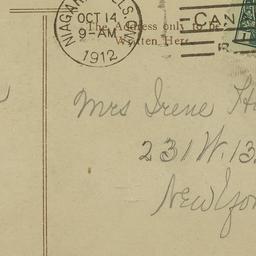 NIAGARA FALLS ONT
OCT 14
9-AM
1912
CAN
The Address only to be
Written Here.
Mrs Irene
231 W. 13
New York